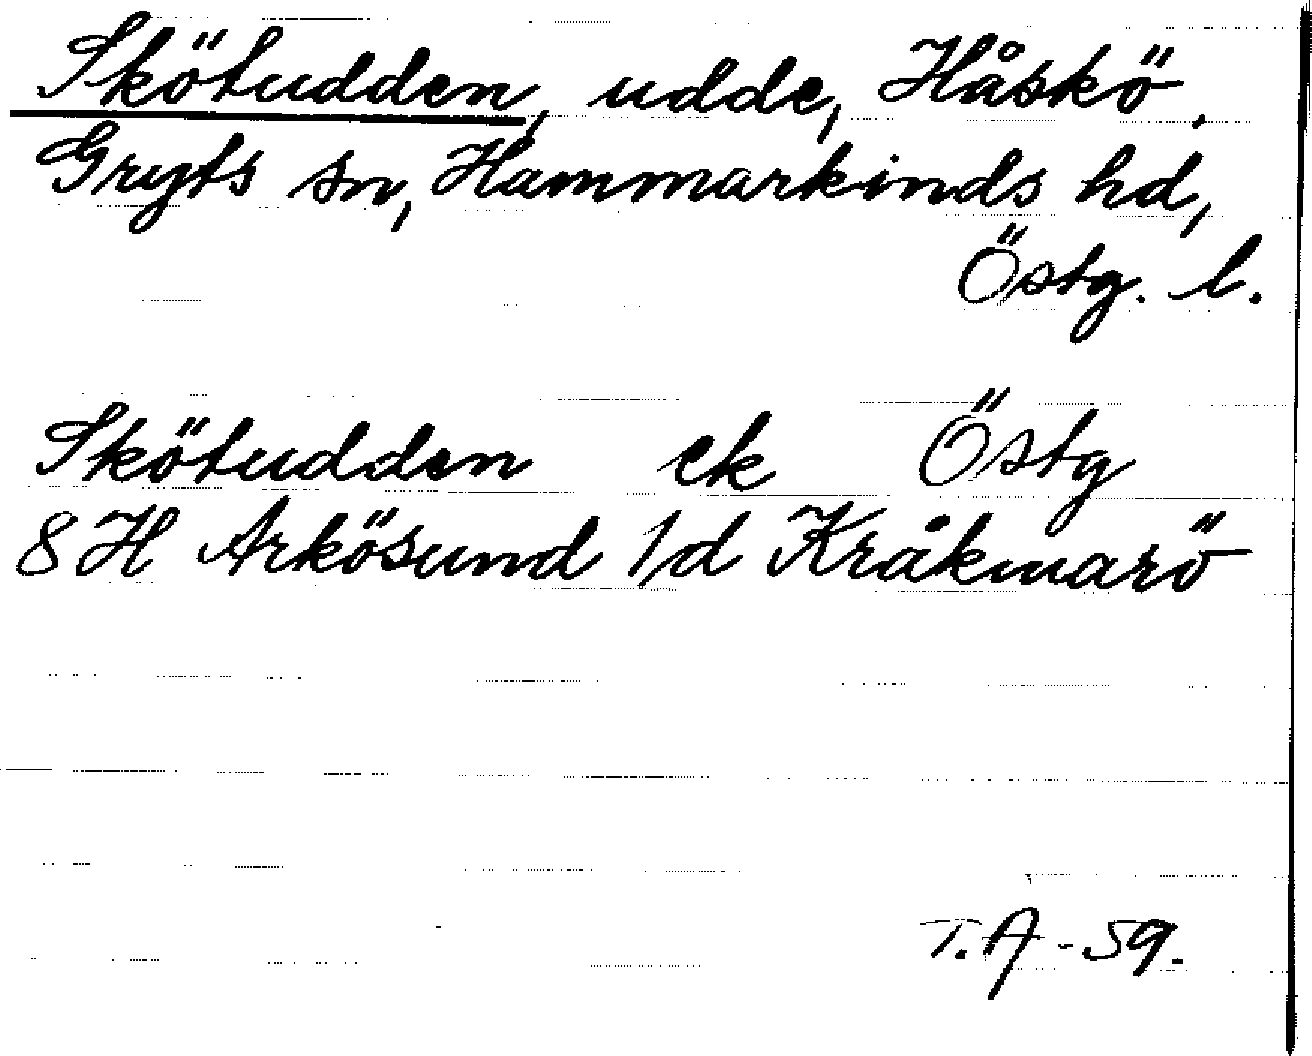 Skötudden, udde, Håskö,
Gryts sn, Hammarkinds hd,
Östg. l.
Skötudden ek Östg
8 H Arkösund 1/d Kråkmarö
T.A-59.